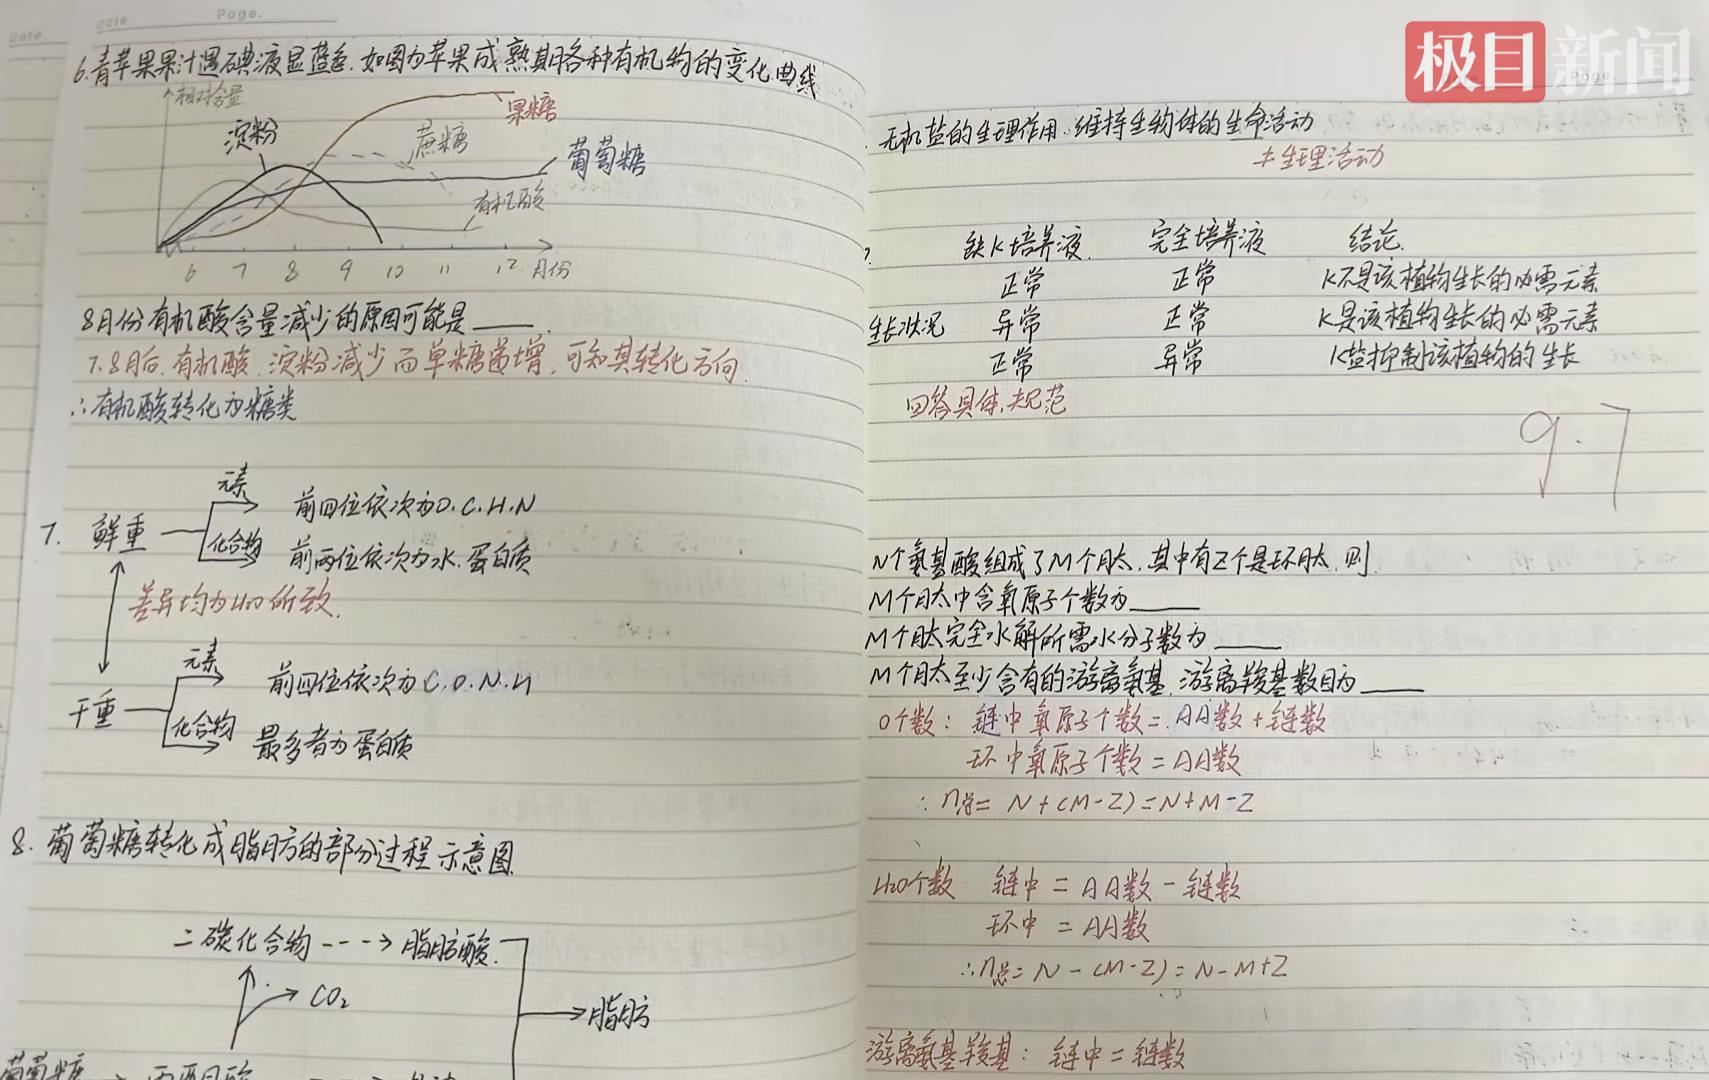 Date.
date
Page.
6.青苹果果汁遇碘液显蓝色.如图为苹果成熟期各种有机物的变化曲线
相对含量
淀粉
果糖
蔗糖
葡萄糖
有机酸
6 7 8 9 10 11 12 月份
8月份有机酸含量减少的原因可能是____.
7.8月后.有机酸.淀粉减少而单糖递增,可知其转化方向.
∴有机酸转化为糖类
7. 鲜重
元素 前四位依次为O.C.H.N
化合物 前两位依次为水.蛋白质
差异均为H2O所致.
干重
元素 前四位依次为C.O.N.H
化合物 最多者为蛋白质
8.葡萄糖转化成脂肪的部分过程示意图.
二碳化合物 脂肪酸
CO2
脂肪
葡萄糖
极目新闻
Page.
无机盐的生理作用.维持生物体的生命活动
≠生理活动
缺K培养液. 完全培养液 结论.
正常 正常 K不是该植物生长的必需元素
生长状况 异常 正常 K是该植物生长的必需元素
正常 异常 K盐抑制该植物的生长
回答具体,规范
9.7
N个氨基酸组成了M个肽.其中有Z个是环肽.则
M个肽中含氧原子个数为____
M个肽完全水解所需水分子数为____
M个肽至少含有的游离氨基.游离羧基数目为____
O个数: 链中氧原子个数=AA数+链数
环中氧原子个数=AA数
∴n总=N+(M-Z)=N+M-Z
H2O个数 链中=AA数-链数
环中=AA数
∴n总=N-(M-Z)=N-M+Z
游离氨基羧基: 链中=链数